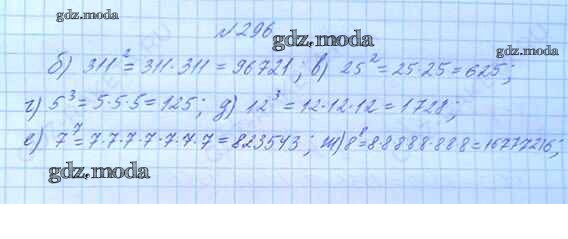 gdz.moda
gdz.moda
№ 296
б) 311² = 311·311 = 96721; в) 25² = 25·25 = 625;
г) 5³ = 5·5·5 = 125; д) 12³ = 12·12·12 = 1728;
е) 7⁷ = 7·7·7·7·7·7·7 = 823543; ж) 8⁸ = 8·8888·888 = 16777216;
gdz.moda
gdz.moda